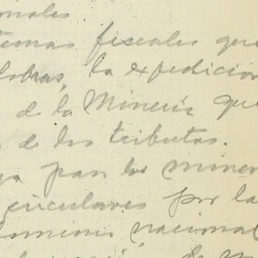 onales
temas fiscales que
obras, la expedición
de la Minería que
de los tributos.
ja para los miner
circulares por la
dominio nacional